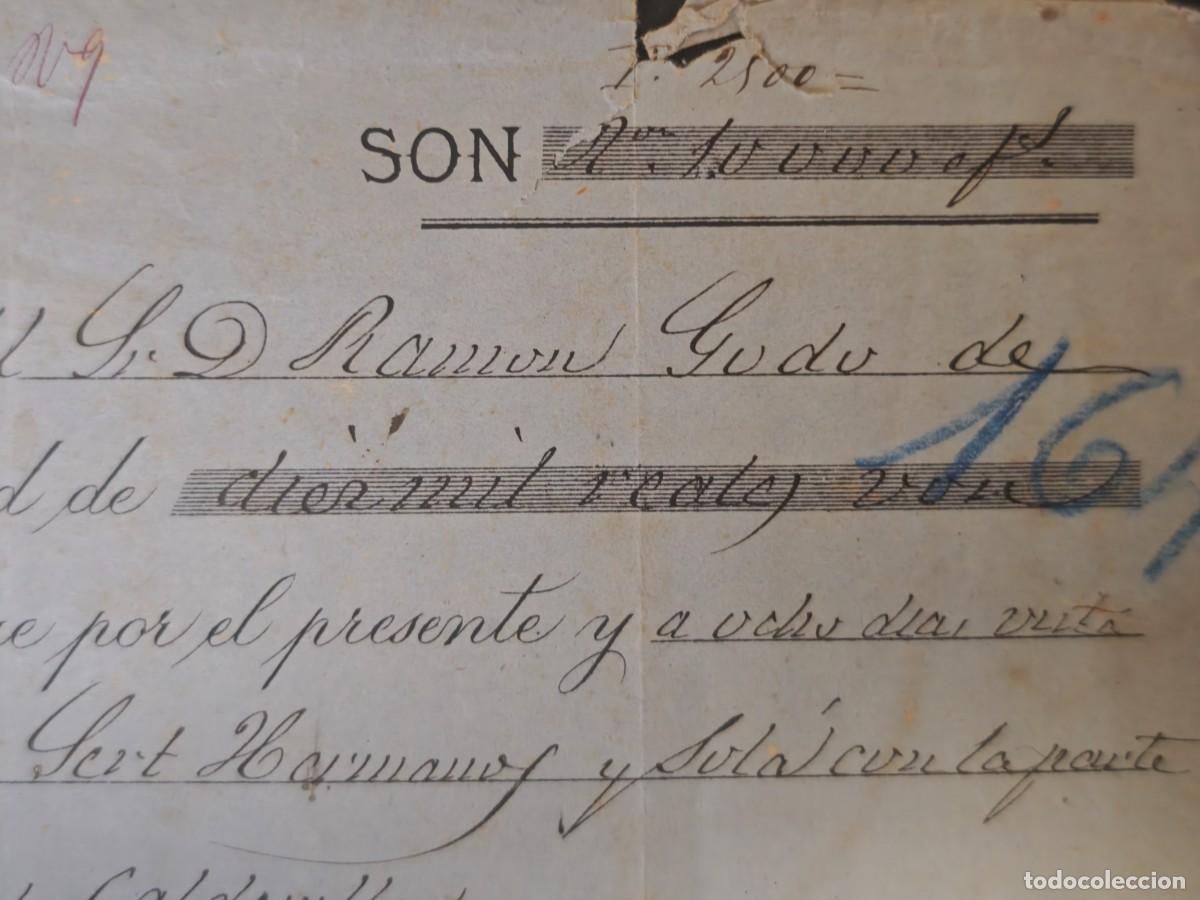 Nº 9
2500 =
SON Rvon. 10000 ef.
Sr. D Ramon Godo de
d de diez mil reales von
16
e por el presente y a ocho dias vista
Sert Hermanos y Solá con la parte
todocoleccion